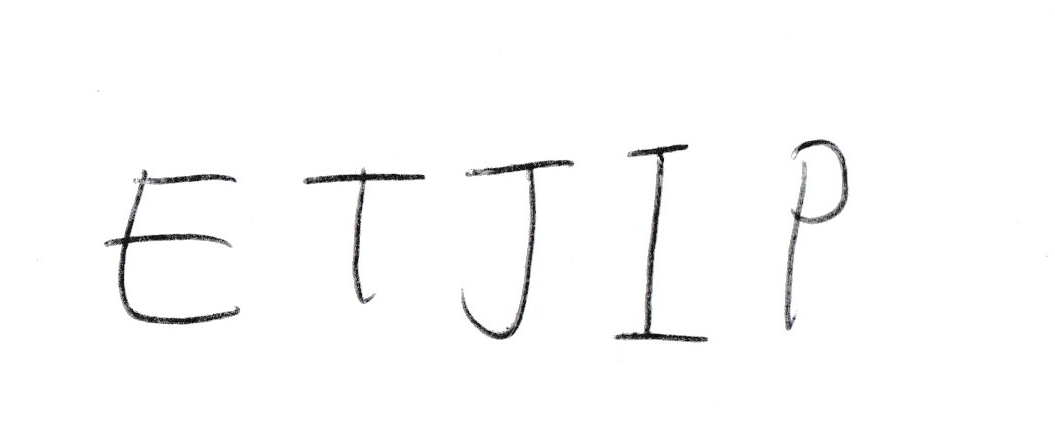 E T J I P